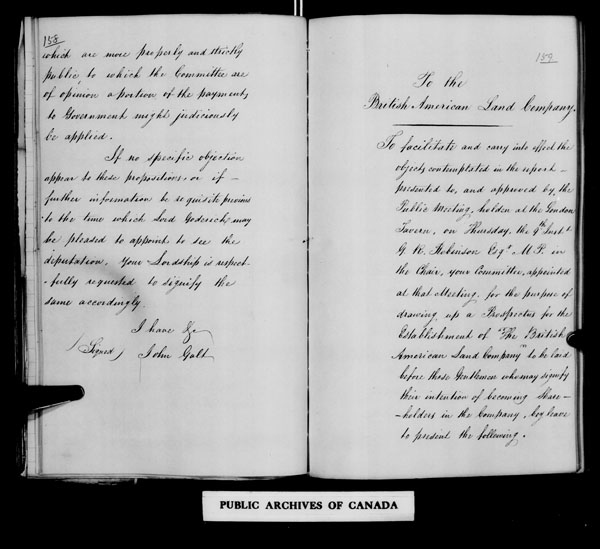 158
which are more properly and strictly
public, to which the Committee are
of opinion a portion of the payments
to Government might judiciously
be applied.
If no specific objection
appear to these propositions, or if –
further information be requisite previous
to the time which Lord Goderich may
be pleased to appoint to see the
deputation, Your Lordship is respect-
-fully requested to signify the
same accordingly.
I have &c
(Signed) John Galt
159
To the
British American Land Company.
To facilitate and carry into effect the
objects contemplated in the report –
presented to, and approved by the
Public Meeting, holden at the London
Tavern, on Thursday, the 9th Inst.
G. R. Robinson Esqr. M.P. in
the Chair, your Committee, appointed
at that Meeting, for the purpose of
drawing up a Prospectus for the
Establishment of "The British
American Land Company" to be laid
before those Gentlemen who may signify
their intention of becoming Share-
-holders in the Company, beg leave
to present the following.
PUBLIC ARCHIVES OF CANADA